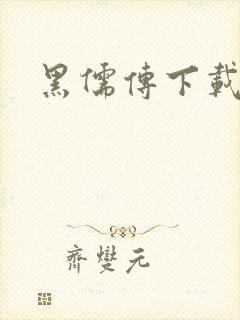 黑儒傳下載
齊變元